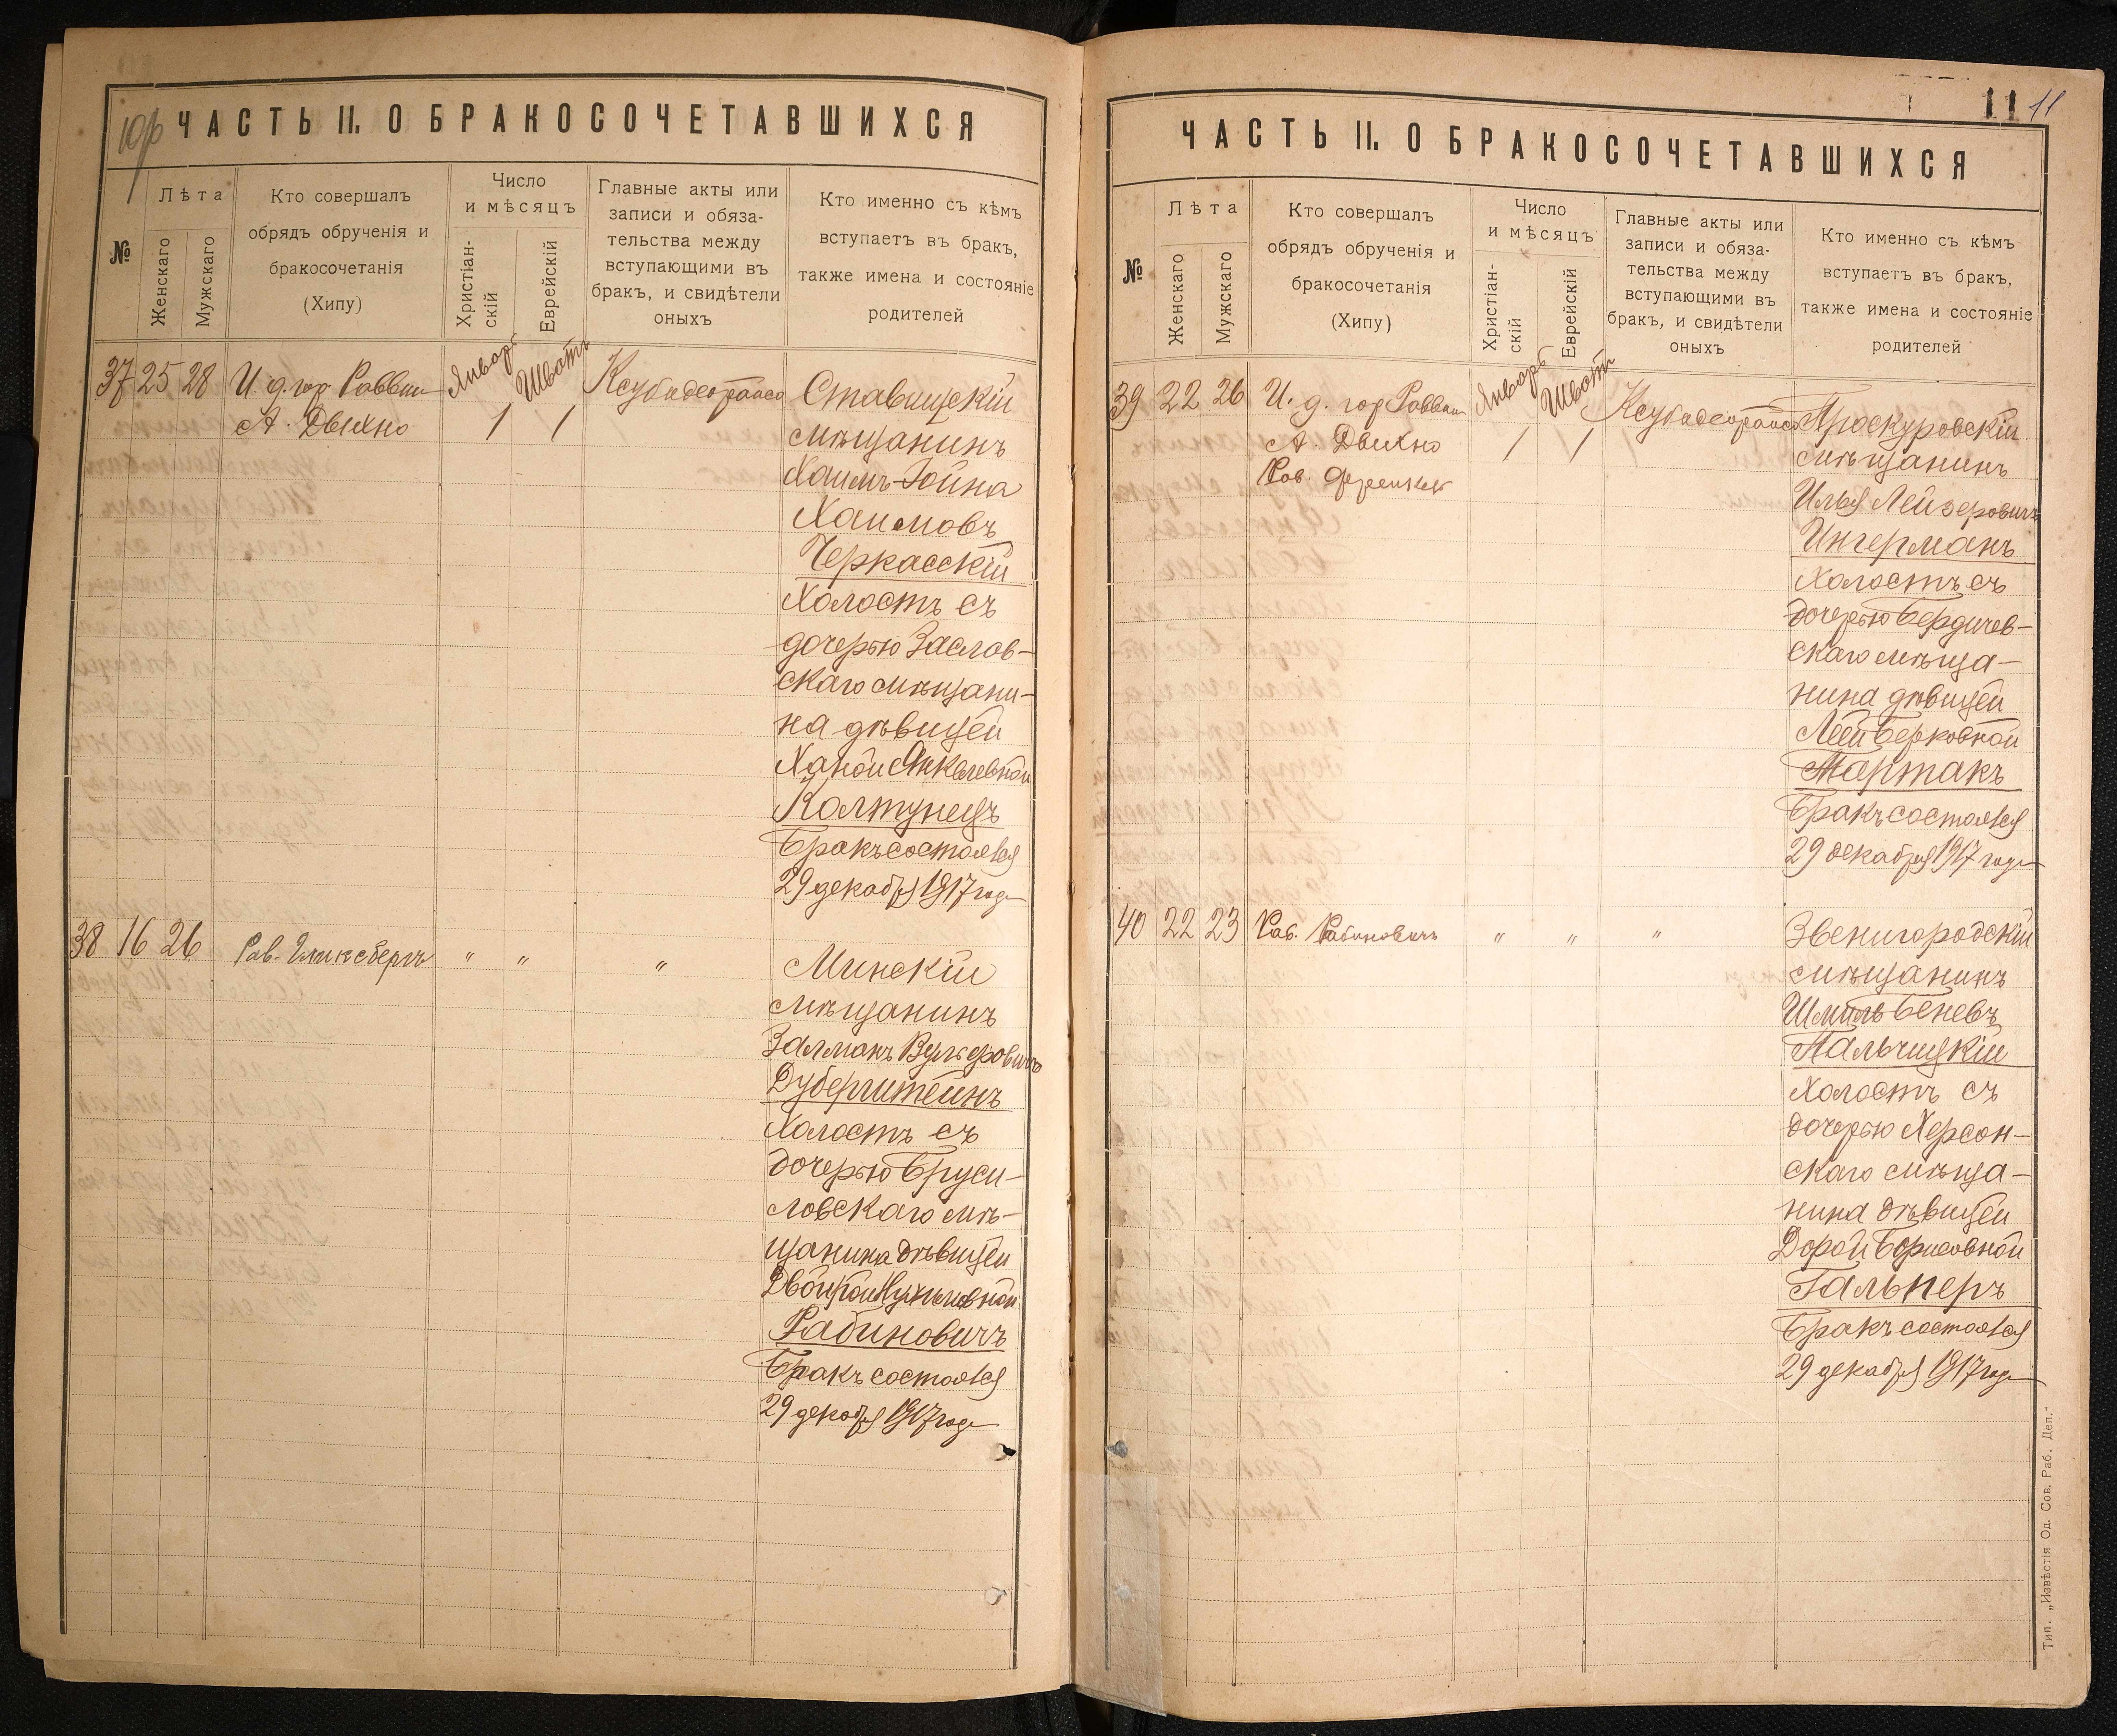 ЧАСТЬ II. О БРАКОСОЧЕТАВШИХСЯ
№
Лѣта
Женскаго
Мужскаго
Кто совершалъ
обрядъ обрученія и
бракосочетанія
(Хипу)
Число
и мѣсяцъ
Христіан-
скій
Еврейскій
Главные акты или
записи и обяза-
тельства между
вступающими въ
бракъ, и свидѣтели
оныхъ
Кто именно съ кѣмъ
вступаетъ въ бракъ,
также имена и состояніе
родителей
Январь
Шватъ
37 25 28 И. д. гор. Раввин
А. Двихно
1 1
Ставищскій
мѣщанинъ
Хаимъ-Іойна
Хаимовъ
Черкасскій
Холостъ съ
дочерью Заслав-
скаго мѣщани-
на дѣвицей
Ханой Янкелевной
Колтунецъ
Бракъ состоялся
29 декабря 1917 года
38 16 26 Рав. Гликсбергъ " " "
Минскій
мѣщанинъ
Залманъ Вульфовичъ
Дуберштейнъ
Холостъ съ
дочерью Бруси-
ловскаго мѣ-
щанина дѣвицей
Двойрой
Рабиновичъ
Бракъ состоялся
29 декабря 1917 года
11 11
ЧАСТЬ II. О БРАКОСОЧЕТАВШИХСЯ
№
Лѣта
Женскаго
Мужскаго
Кто совершалъ
обрядъ обрученія и
бракосочетанія
(Хипу)
Число
и мѣсяцъ
Христіан-
скій
Еврейскій
Главные акты или
записи и обяза-
тельства между
вступающими въ
бракъ, и свидѣтели
оныхъ
Кто именно съ кѣмъ
вступаетъ въ бракъ,
также имена и состояніе
родителей
Январь
Шватъ
39 22 26 И. д. гор Раввин
А. Двихно
Рав.
1 1
Проскуровскій
мѣщанинъ
Илья Лейзеровичъ
Ингерманъ
Холостъ съ
дочерью Бердичев-
скаго мѣща-
нина дѣвицей
Леей Берковной
Мартакъ
Бракъ состоялся
29 декабря 1917 года
40 22 23 Рав. Рабиновичъ " " "
Звенигородскій
мѣщанинъ
Шмиль Беневъ
Пальчицкій
Холостъ съ
дочерью Херсон-
скаго мѣща-
нина дѣвицей
Дорой Борисовной
Гальперъ
Бракъ состоялся
29 декабря 1917 года
Тип. „Извѣстія Од. Сов. Раб. Деп."